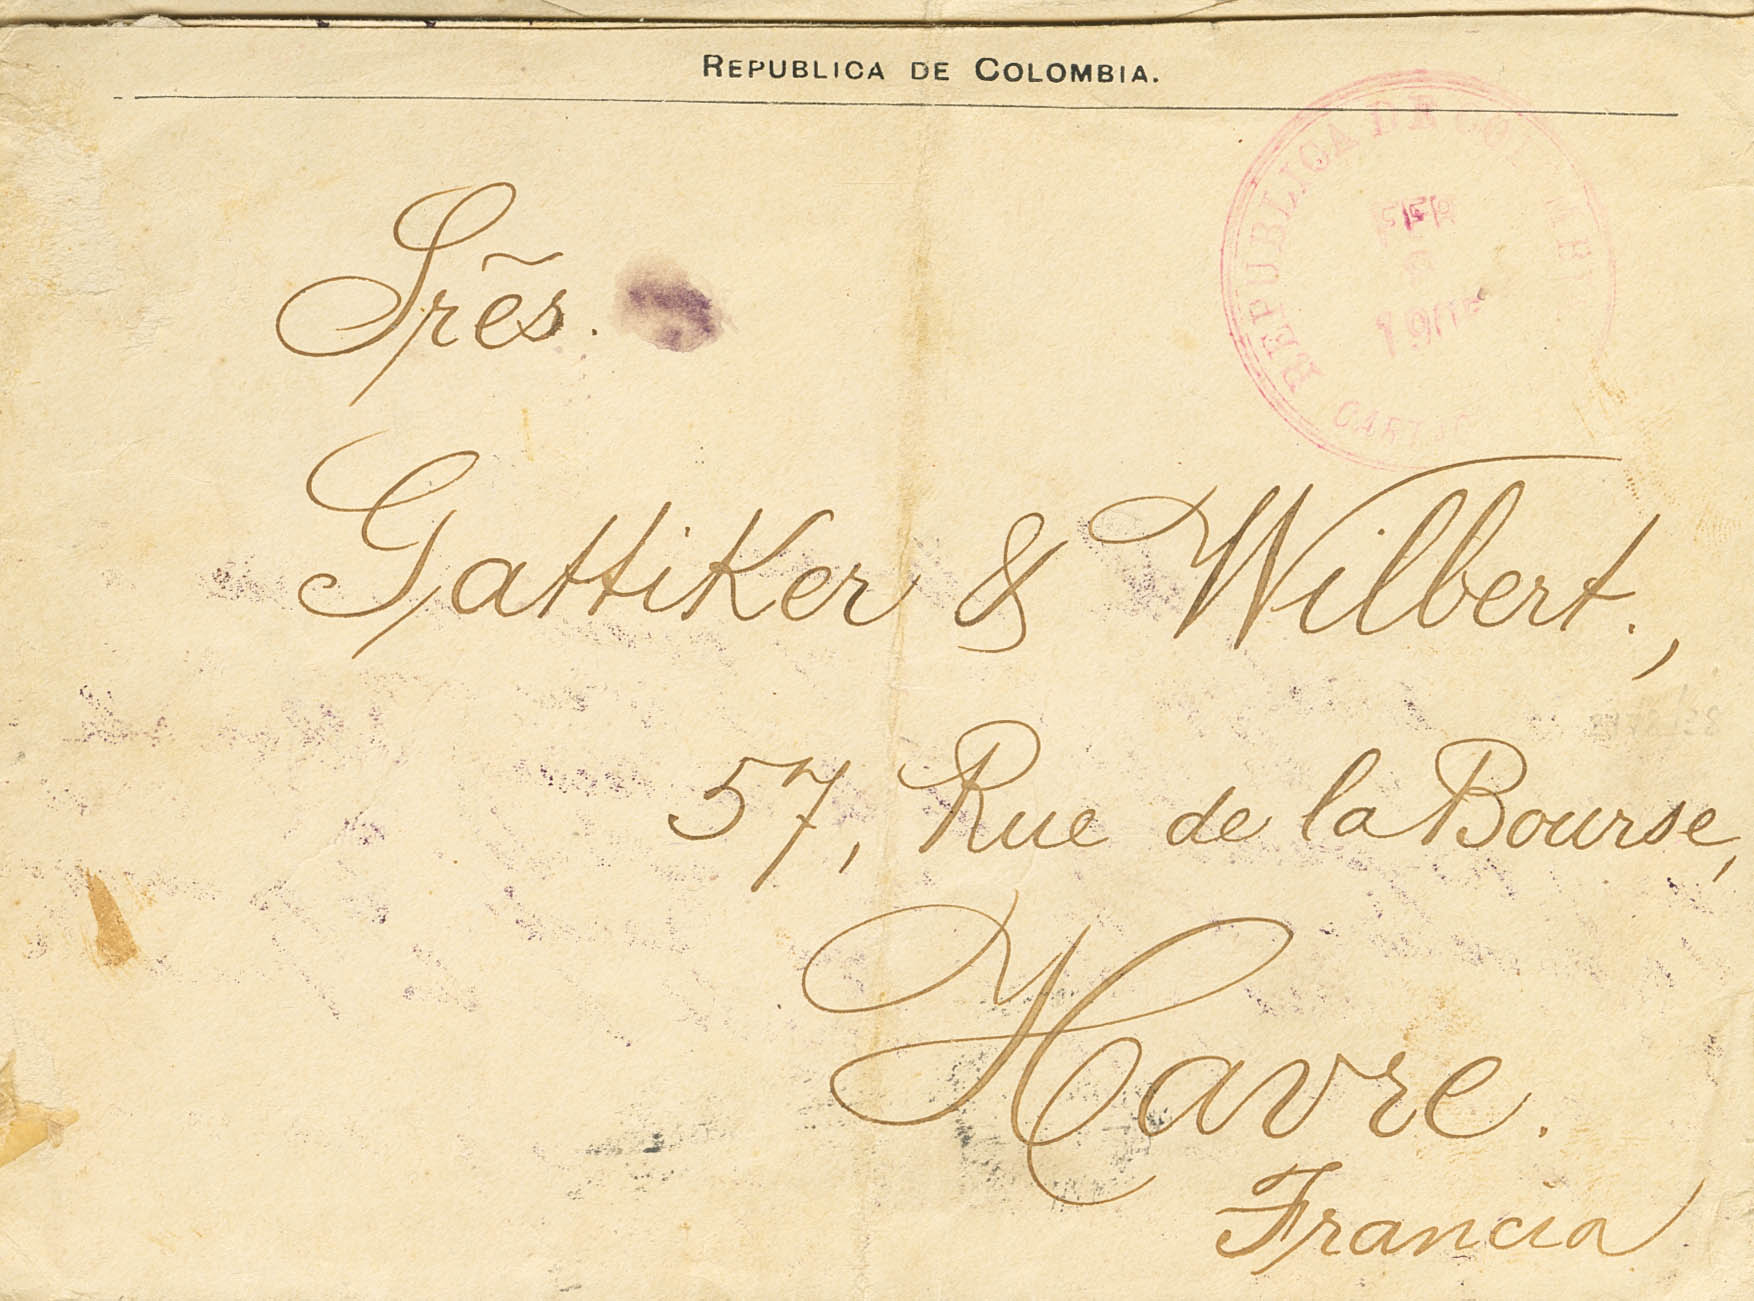 REPUBLICA DE COLOMBIA.
REPUBLICA DE
Srẽs.
Gattiker & Wilbert.,
57, Rue de la Bourse,
Havre.
Francia